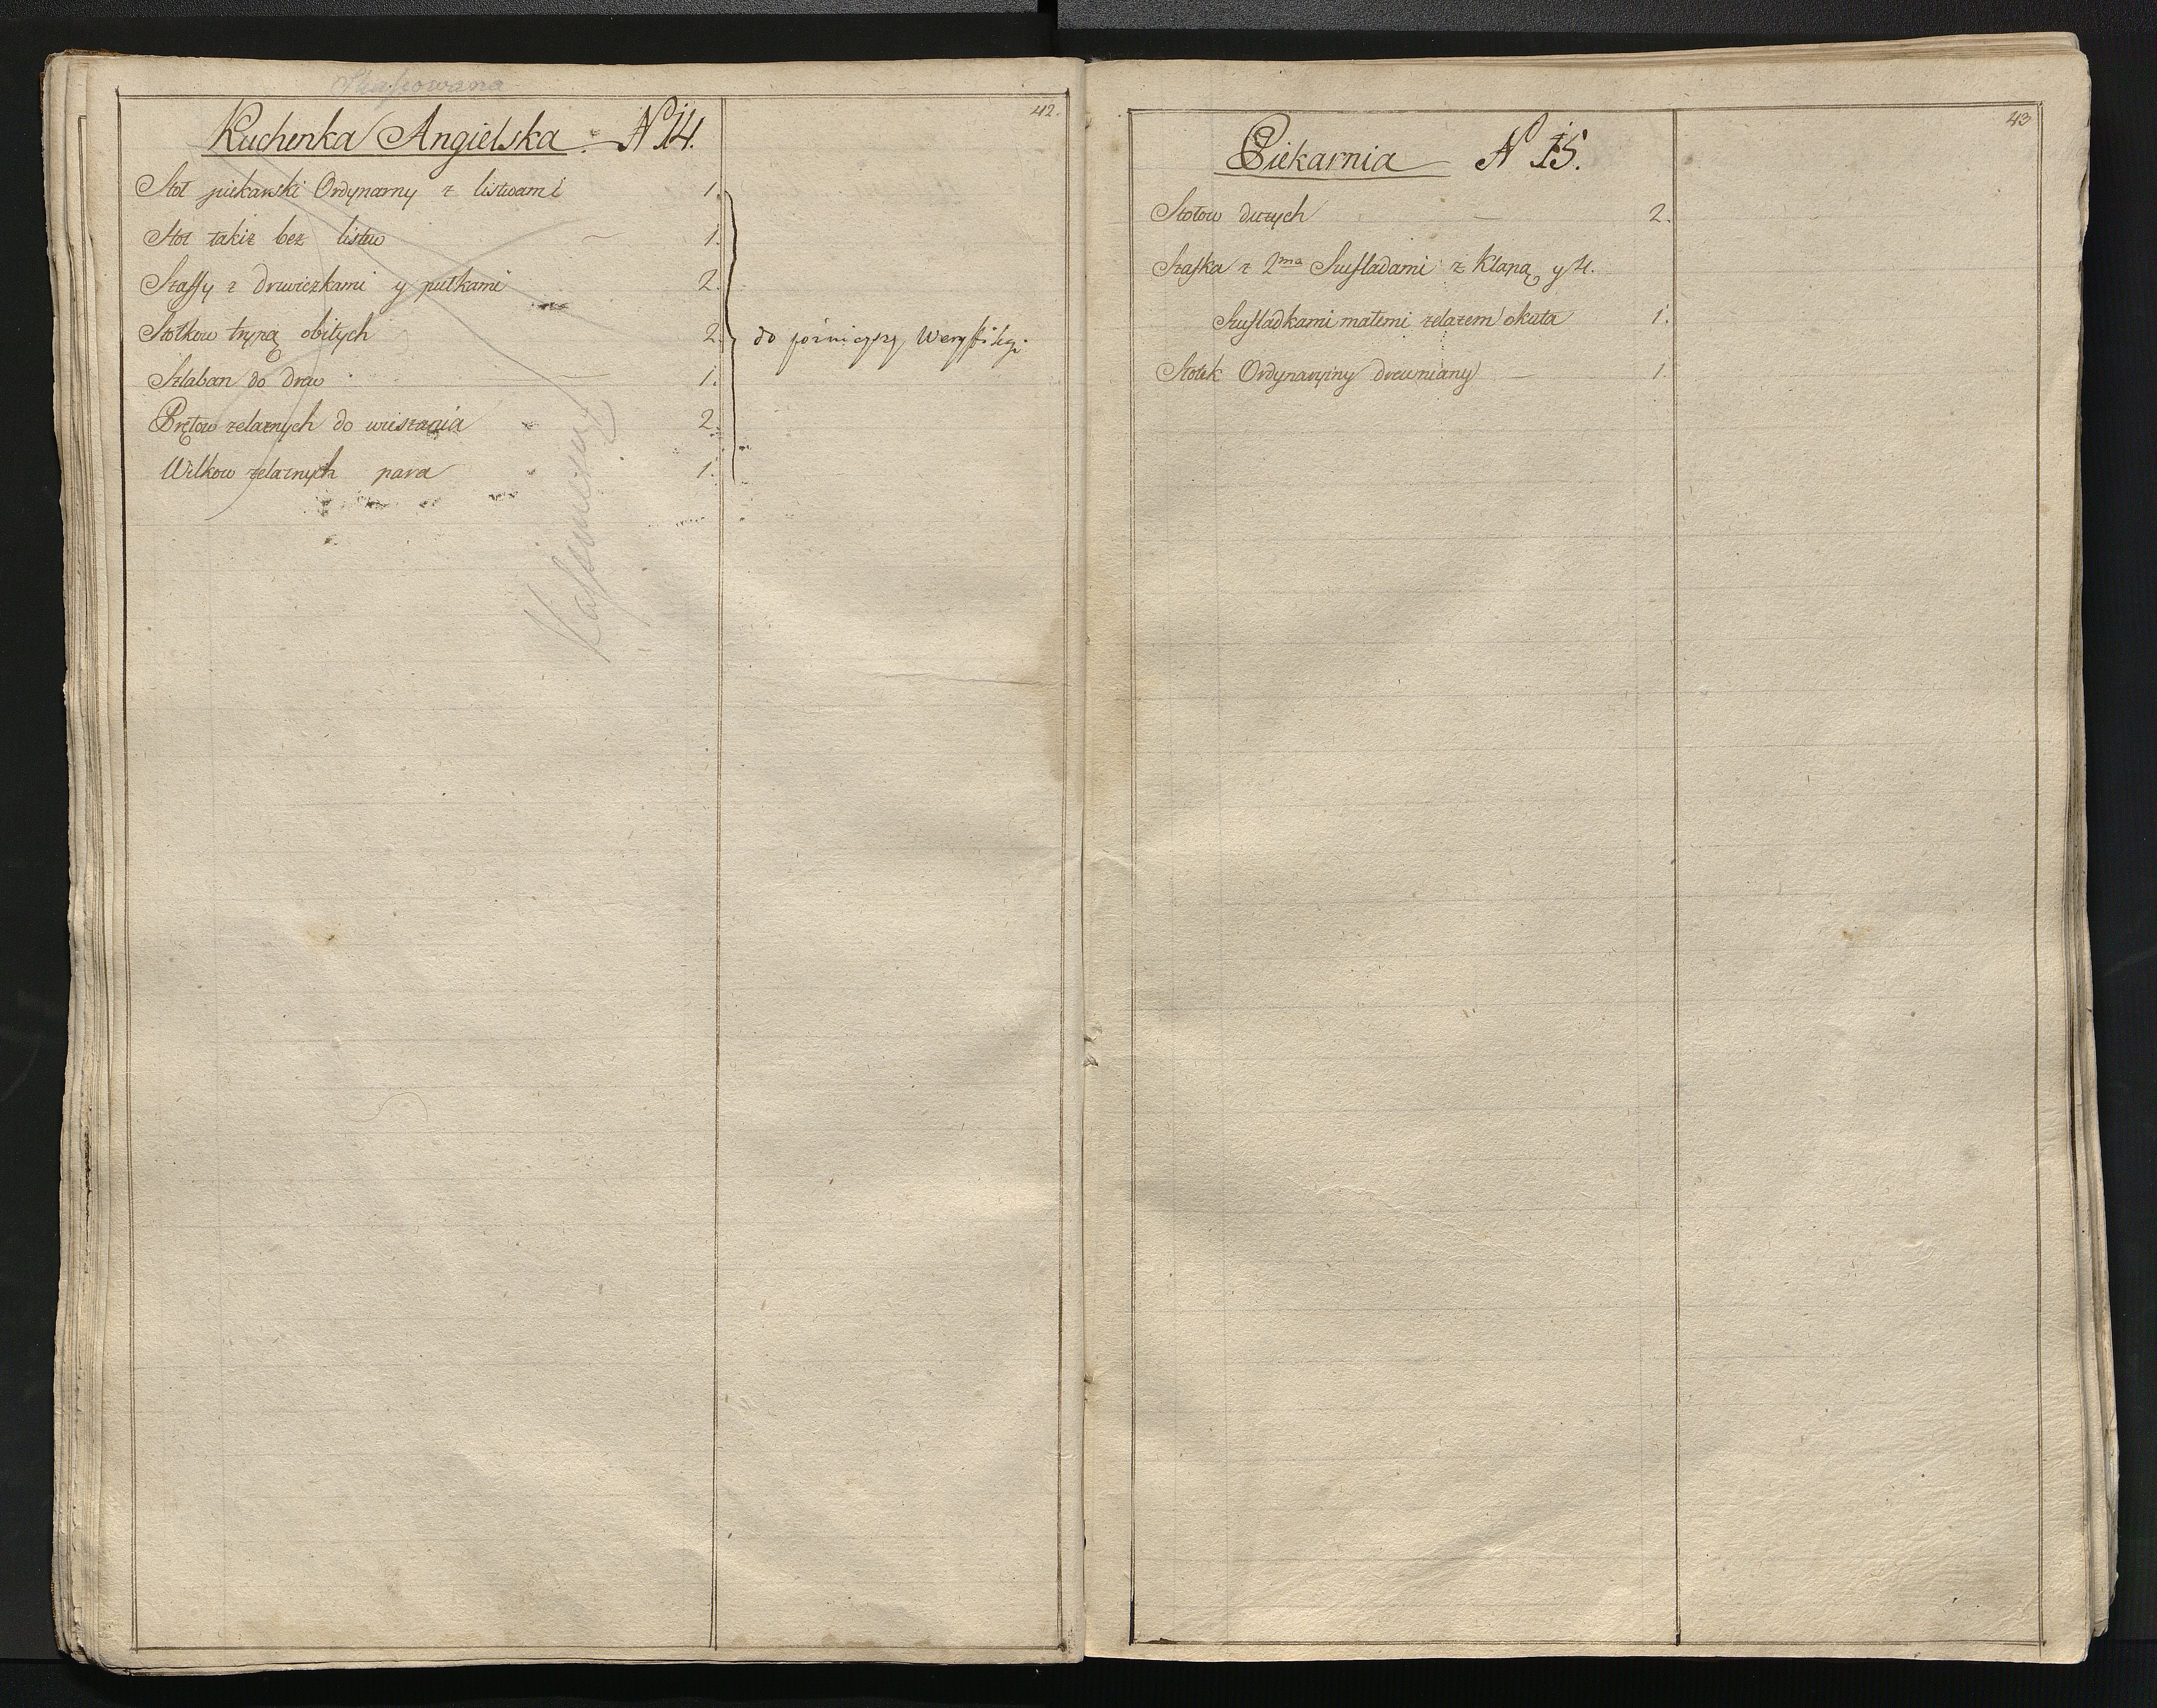 Skassowana
42.
Kuchenka Angielska N 14.
Stoł piekarski Ordynarny z listwami 1.
Stoł takiż bez listew 1.
Szaffy z drzwiczkami y pułkami 2.
Stołkow trypą obitych 2.
do poznieyszey Weryfikcyi
Szlaban do drew 1.
Prętow zelaznych do wieszania 2.
Wilkow zelaznych para 1.
43
Piekarnia N 15.
Stołow duzych 2.
Szafka z 2ma Szufladami z Klapą y 4.
Szufladkami małemi zelazem okuta 1.
Stołek Ordynaryiny drewniany 1.